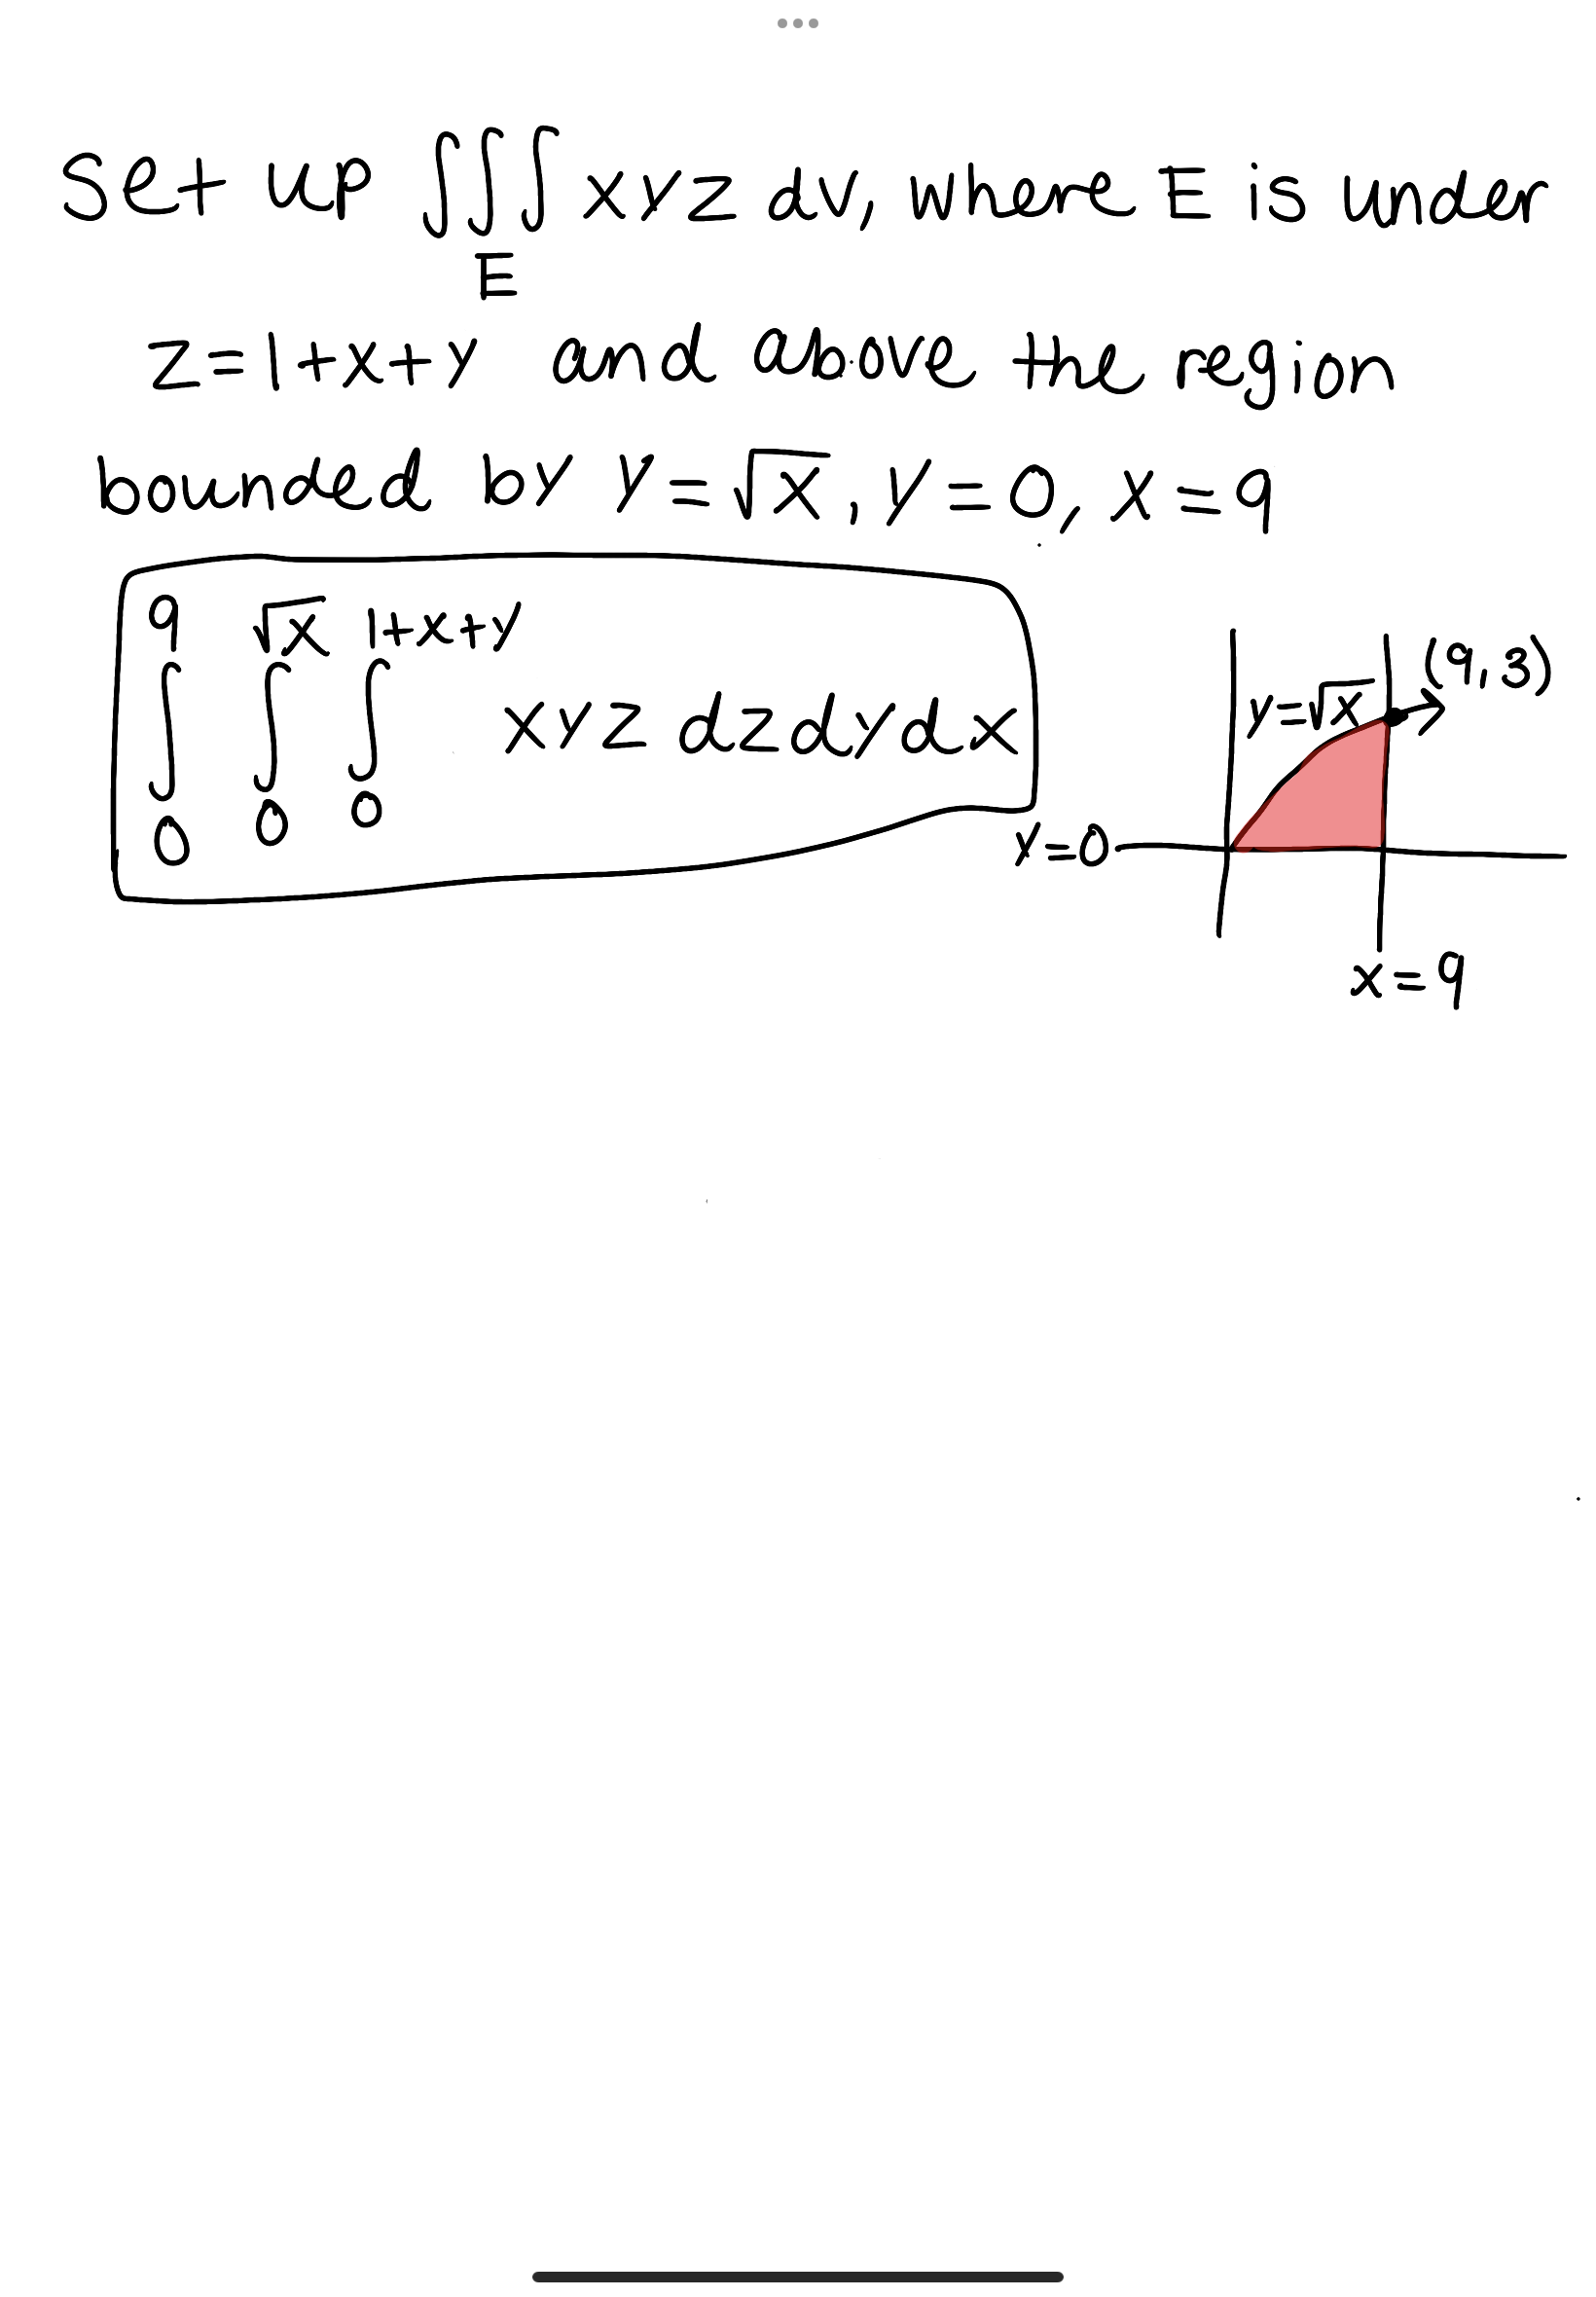 Set up ∫∫∫ xyz dv, where E is under
E
z=1+x+y and above the region
bounded by y=√x, y=0, x=9
9 √x 1+x+y
∫ ∫ ∫ xyz dzdydx
0 0 0
y=√x (9,3)
y=0
x=9